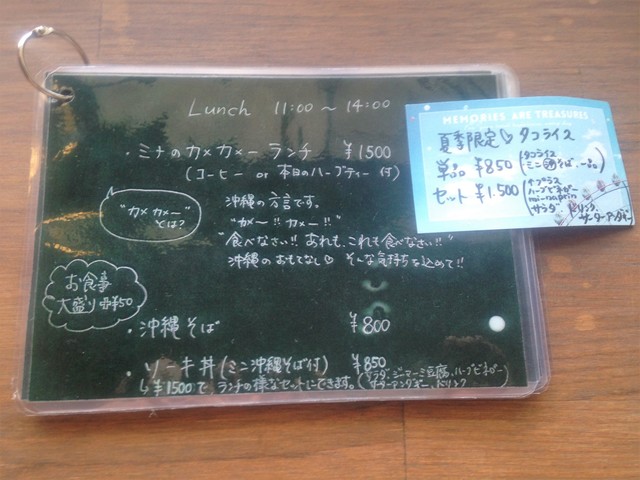 Lunch 11:00 〜 14:00
・ミナのカメカメー ランチ ¥1500
(コーヒー or 本日のハーブティー 付)
"カメカメー"とは?
沖縄の方言です。
"カメー!! カメー!!"
"食べなさい!! あれも、これも食べなさい!!"
沖縄のおもてなし♡ そんな気持ちを込めて!!
お食事
大盛り ¥50
・沖縄そば ¥800
・ソーキ丼(ミニ沖縄そば付) ¥850
↳¥1500で ランチの様なセットにできます。(サラダ、ジーマーミ豆腐、ハーブビネガー
サーターアンダギー、ドリンク)
MEMORIES ARE TREASURES
夏季限定♡タコライス
単品 ¥850 (タコライス
ミニそば、一品)
セット ¥1.500 (タコライス
ハーブビネガー
サラダ ドリンク、
サーターアンダギー)